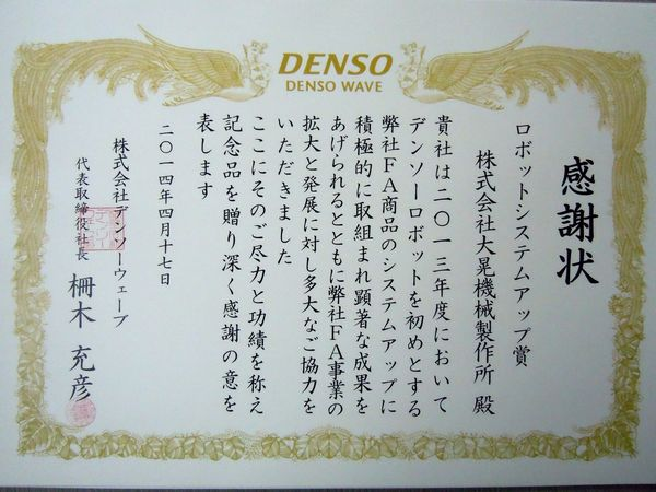 DENSO
DENSO WAVE
感謝状
ロボットシステムアップ賞
株式会社大晃機械製作所 殿
貴社は二〇一三年度において
デンソーロボットを初めとする
弊社FA商品のシステムアップに
積極的に取組まれ顕著な成果を
あげられるとともに弊社FA事業の
拡大と発展に対し多大なご協力を
いただきました
ここにそのご尽力と功績を称え
記念品を贈り深く感謝の意を
表します
二〇一四年四月十七日
株式会社デンソーウェーブ
代表取締役社長 柵木 充彦